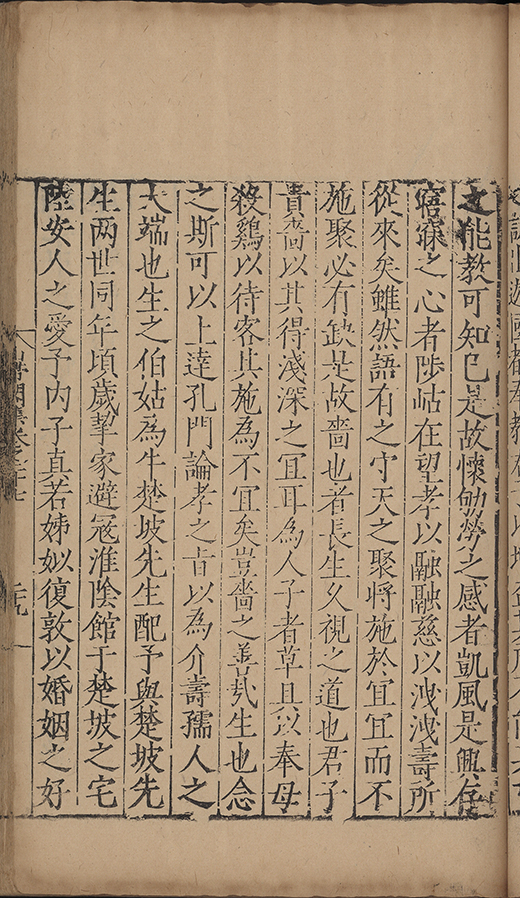 文能教可知已是故懷劬勞之感者凱風是興存
寤寐之心者陟岵在望孝以融融慈以洩洩壽所
從來矣雖然語有之守天之聚將施於宜宜而不
施聚必有缺是故嗇也者長生久視之道也君子
貴嗇以其得淺深之宜耳為人子者草具以奉母
殺鷄以待客其施為不宜矣豈嗇之善哉生也念
之斯可以上達孔門論孝之旨以為介壽孺人之
大端也生之伯姑為牛楚坡先生配予與楚坡先
生两世同年頃歲挈家避寇淮陰館于楚坡之宅
陸安人之愛子内子真若姊姒復敦以婚姻之好